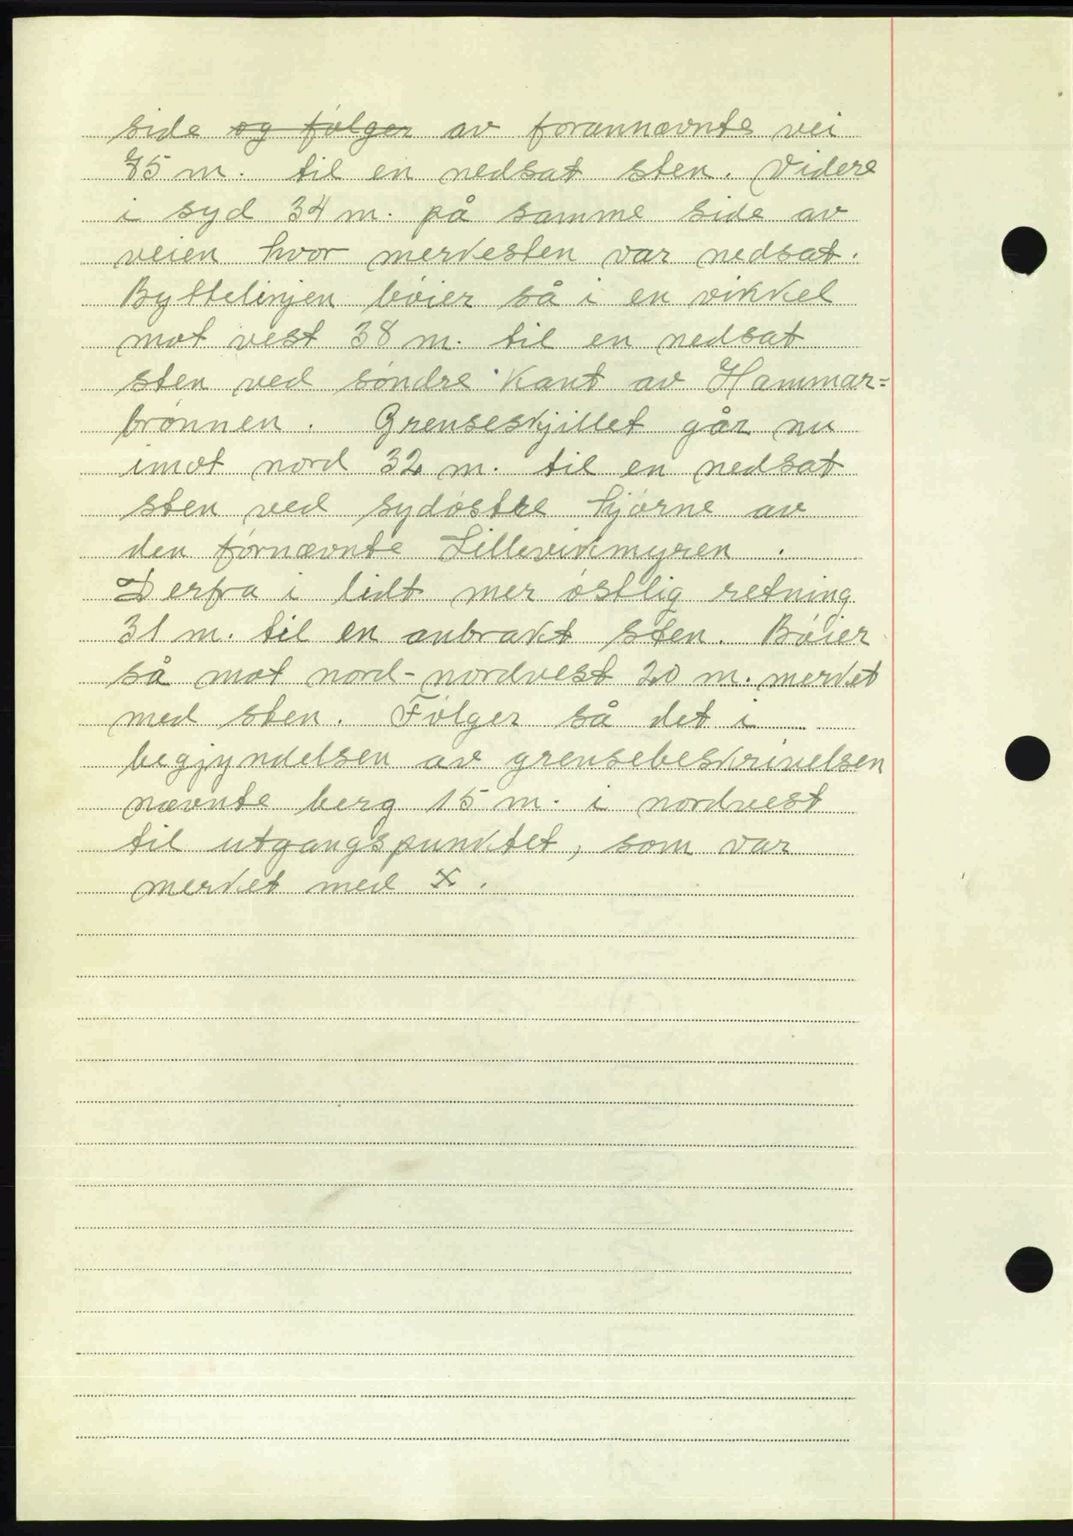 side ~~og følger~~ av forannævnte vei
75 m. til en nedsat sten. Videre
i syd 34 m. på samme side av
veien hvor merkesten var nedsat.
Byttelinjen bøier så i en vinkel
mot vest 38 m. til en nedsat
sten ved søndre kant av Hammar=
brønnen. Grenseskjillet går nu
imot nord 32 m. til en nedsat
sten ved sydøstre hjørne av
den førnævnte Lillevikmyren.
Derfra i lidt mer østlig retning
31 m. til en anbrakt sten. Bøier
så mot nord-nordvest 20 m. merket
med sten. Følger så det i
begjyndelsen av grensebeskrivelsen
nævnte berg 15 m. i nordvest
til utgangspunktet, som var
merket med x.